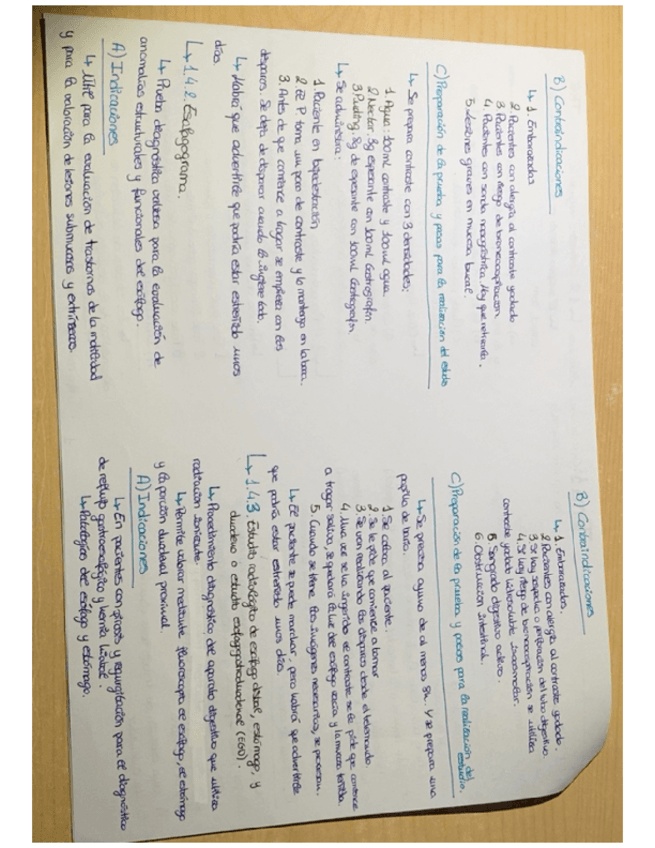 B) Contraindicaciones
↳ 1. Embarazadas
2. Pacientes con alergia al contraste yodado
3. Pacientes con riesgo de broncoaspiración
4. Pacientes con sonda nasogástrica. Hay que retirarla.
5. Lesiones graves en mucosa bucal.
C) Preparación de la prueba y pasos para la realización del estudio
↳ Se prepara contraste con 3 densidades:
1. Agua: 100ml contraste y 100ml agua.
2. Nectar. 3g espesante con 100ml Gastrografin.
3. Pudding. 8g de espesante con 100ml Gastrografin
↳ Se administra:
1. Paciente en bipedestación
2. El P toma un poco de contraste y lo mantiene en la boca.
3. Antes de que comience a tragar se empieza con los
disparos. Se deja de disparar cuando lo ingiere todo.
↳ Habrá que advertirle que podría estar estreñido unos
días.
↳ 1.4.2. Esofagograma.
↳ Prueba diagnóstica valiosa para la evaluación de
anomalías estructurales y funcionales del esófago.
A) Indicaciones
↳ Útil para la evaluación de trastornos de la motilidad
y para la valoración de lesiones submucosas y extrínsecas.
B) Contraindicaciones
↳ 1. Embarazadas.
2. Pacientes con alergia al contraste yodado.
3. Si hay sospecha o perforación del tubo digestivo.
4. Si hay riesgo de broncoaspiración se utiliza
contraste yodado hidrosoluble isoosmolar.
5. Sangrado digestivo activo.
6. Obstrucción intestinal.
C) Preparación de la prueba y pasos para la realización del
estudio.
↳ Se precisa ayuno de al menos 8h. Y se prepara una
papilla de bario.
1. Se coloca al paciente.
2. Se le pide que comience a tomar
3. Se van realizando los disparos desde el telemando.
4. Una vez se ha ingerido el contraste se le pide que comience
a tragar saliva, se quedará la luz del esófago vacía y la mucosa teñida.
5. Cuando se tiene las imágenes necesarias, se procesan.
↳ El paciente se puede marchar, pero habrá que advertirle
que podría estar estreñido unos días.
↳ 1.4.3. Estudio radiológico de esófago distal, estómago, y
duodeno o estudio esofagogastroduodenal (EGD).
↳ Procedimiento diagnóstico del aparato digestivo que utiliza
radiación ionizante.
↳ Permite valorar mediante fluoroscopia el esófago, el estómago
y la porción duodenal proximal.
A) Indicaciones
↳ En pacientes con pirosis y regurgitación para el diagnóstico
de reflujo gastroesofágico y hernia hiatal.
↳ Patología del esófago y estómago.